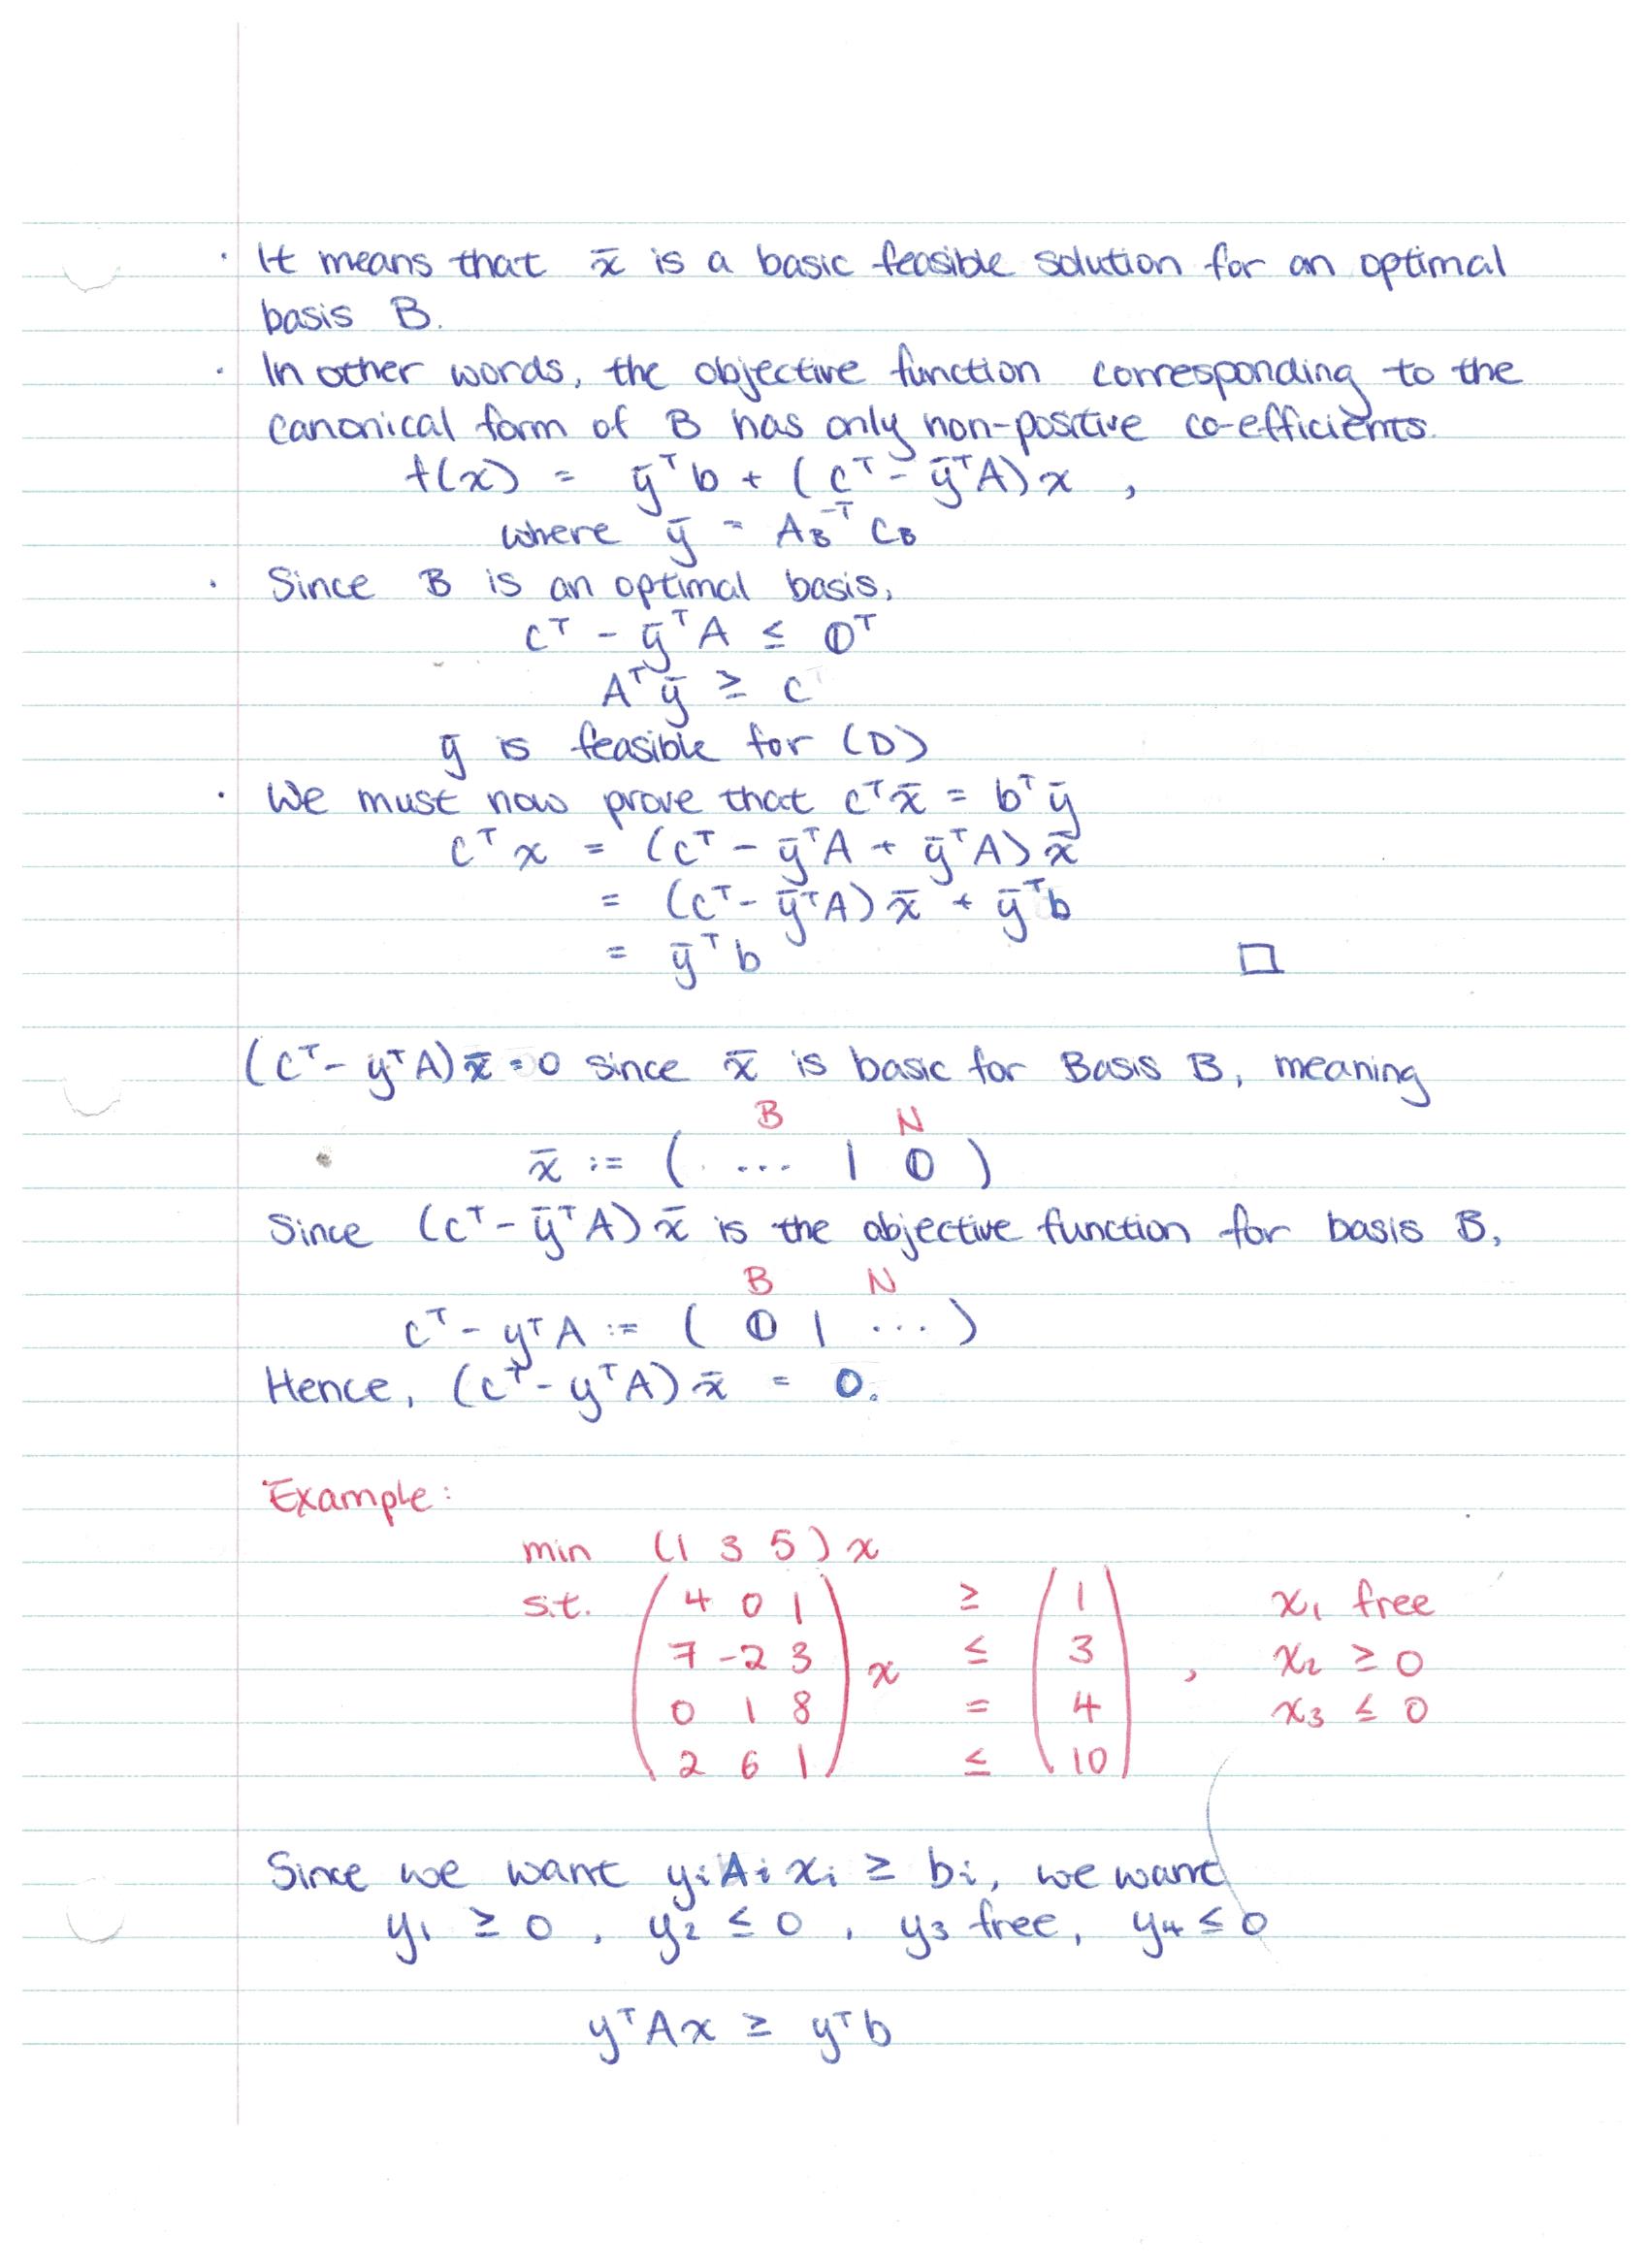 · It means that x̄ is a basic feasible solution for an optimal
basis B.
· In other words, the objective function corresponding to the
canonical form of B has only non-positive co-efficients.
f(x) = ȳᵀb + (cᵀ - ȳᵀA)x ,
where ȳ = A_B⁻ᵀ c_B
· Since B is an optimal basis,
cᵀ - ȳᵀA ≤ 0ᵀ
Aᵀȳ ≥ c
ȳ is feasible for (D)
· We must now prove that cᵀx̄ = bᵀȳ
cᵀx = (cᵀ - ȳᵀA + ȳᵀA)x̄
= (cᵀ - ȳᵀA)x̄ + ȳᵀb
= ȳᵀb □
(cᵀ - yᵀA)x̄ = 0 since x̄ is basic for Basis B, meaning
B N
x̄ := ( ... | 0 )
Since (cᵀ - ȳᵀA)x̄ is the objective function for basis B,
B N
cᵀ - yᵀA := ( 0 | ... )
Hence, (cᵀ - yᵀA)x̄ = 0.
Example:
min (1 3 5)x
s.t. (4 0 1 ≥ (1 x₁ free
7 -2 3 x ≤ 3 , x₂ ≥ 0
0 1 8 = 4 x₃ ≤ 0
2 6 1) ≤ 10)
Since we want yᵢAᵢxᵢ ≥ bᵢ, we want
y₁ ≥ 0, y₂ ≤ 0, y₃ free, y₄ ≤ 0
yᵀAx ≥ yᵀb